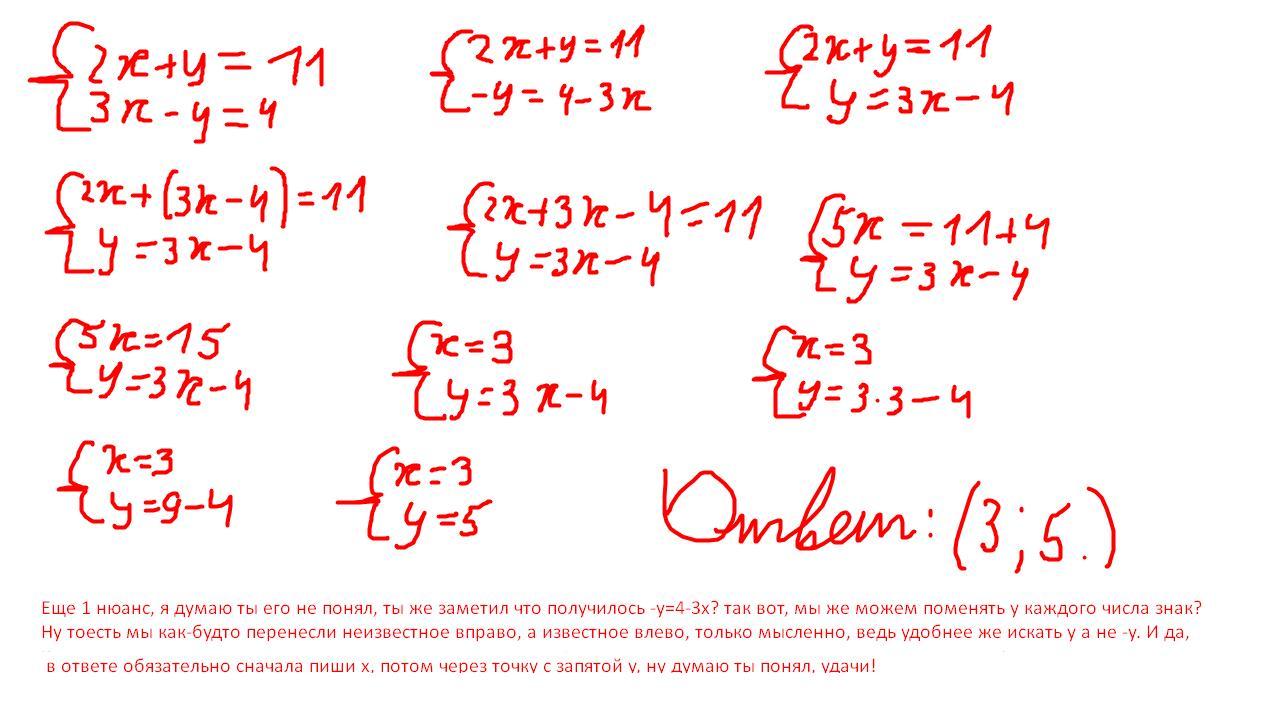 2x+y=11 2x+y=11 2x+y=11
3x-y=4 -y=4-3x y=3x-4
2x+(3x-4)=11 2x+3x-4=11 5x=11+4
y=3x-4 y=3x-4 y=3x-4
5x=15 x=3 x=3
y=3x-4 y=3x-4 y=3·3-4
x=3 x=3
y=9-4 y=5
Ответ: (3;5.)
Еще 1 нюанс, я думаю ты его не понял, ты же заметил что получилось -y=4-3x? так вот, мы же можем поменять у каждого числа знак?
Ну тоесть мы как-будто перенесли неизвестное вправо, а известное влево, только мысленно, ведь удобнее же искать y а не -y. И да,
в ответе обязательно сначала пиши x, потом через точку с запятой y, ну думаю ты понял, удачи!